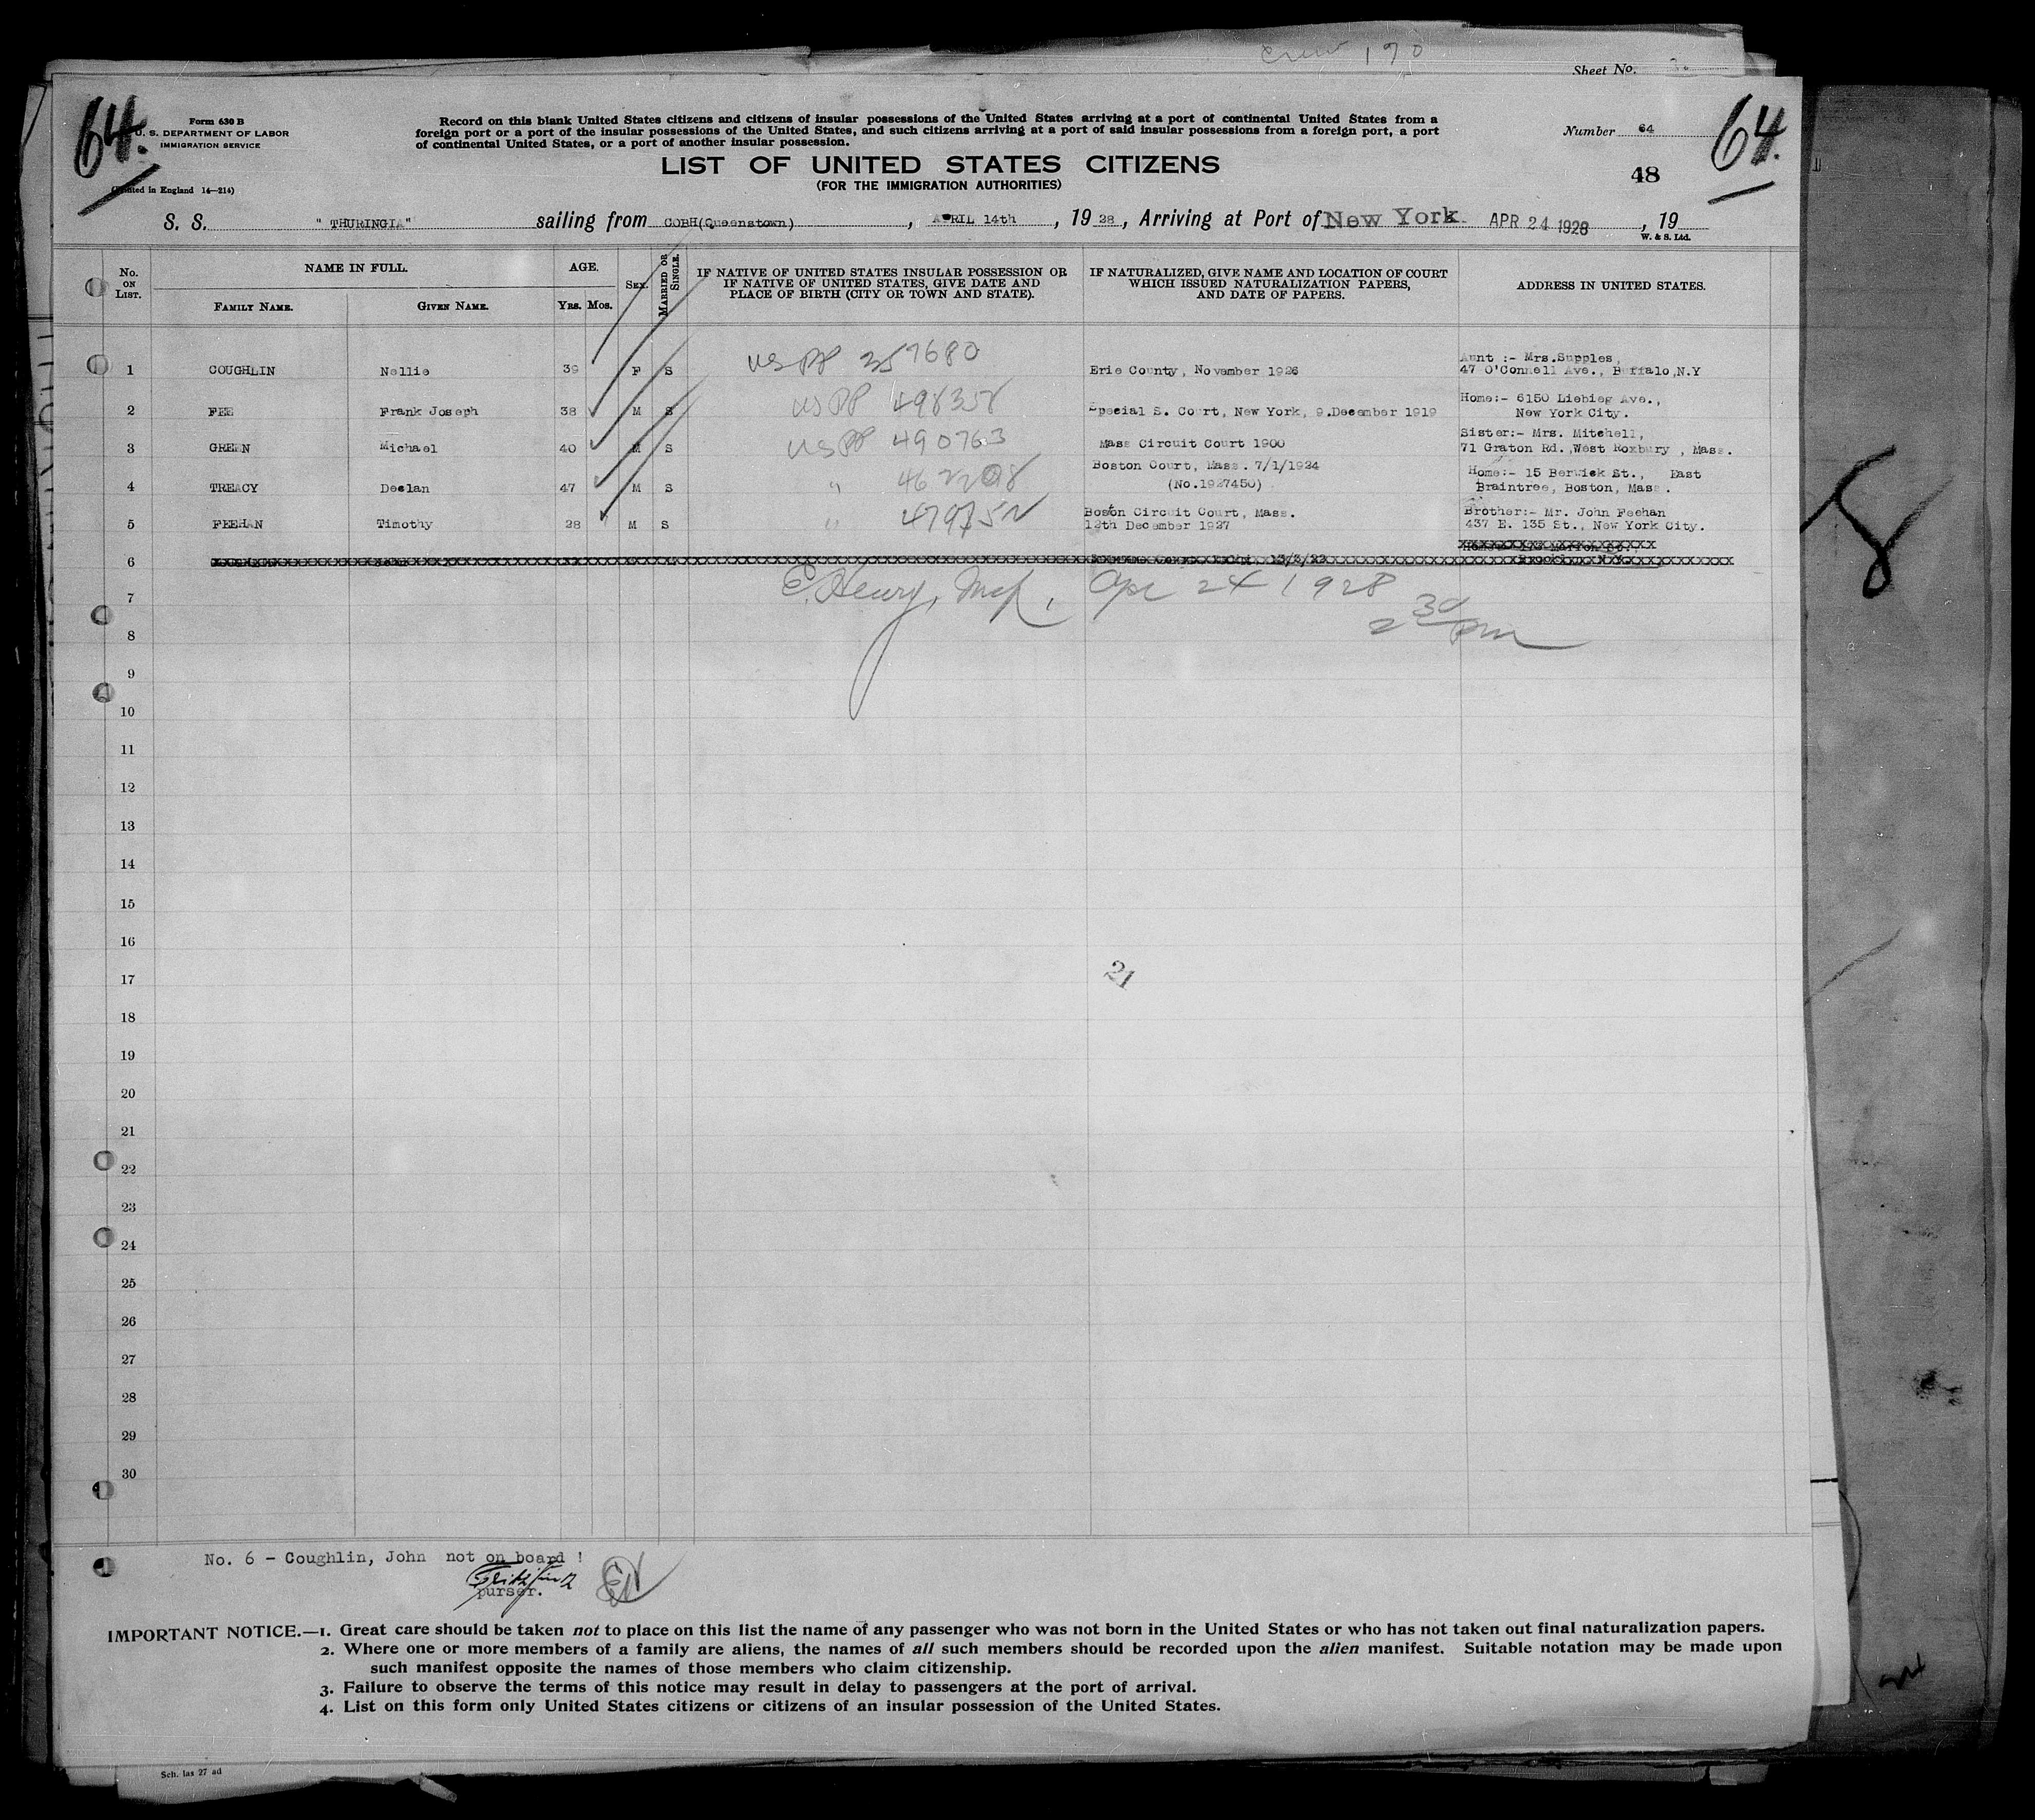 Crew 190
Sheet No.
64.
Form 630 B
U. S. DEPARTMENT OF LABOR
IMMIGRATION SERVICE
(Printed in England 14—214)
Record on this blank United States citizens and citizens of insular possessions of the United States arriving at a port of continental United States from a
foreign port or a port of the insular possessions of the United States, and such citizens arriving at a port of said insular possessions from a foreign port, a port
of continental United States, or a port of another insular possession.
LIST OF UNITED STATES CITIZENS
(FOR THE IMMIGRATION AUTHORITIES)
Number 64
64.
48
S. S. "THURINGIA" sailing from COBH(Queenstown), APRIL 14th, 1928, Arriving at Port of New York APR 24 1928, 19
W. & S. Ltd.
No. ON LIST. NAME IN FULL. FAMILY NAME. GIVEN NAME. AGE. YRS. MOS. SEX. MARRIED OR SINGLE. IF NATIVE OF UNITED STATES INSULAR POSSESSION OR IF NATIVE OF UNITED STATES, GIVE DATE AND PLACE OF BIRTH (CITY OR TOWN AND STATE). IF NATURALIZED, GIVE NAME AND LOCATION OF COURT WHICH ISSUED NATURALIZATION PAPERS, AND DATE OF PAPERS. ADDRESS IN UNITED STATES.
1 COUGHLIN Nellie 39 F S US PP 357680 Erie County, November 1926 Aunt :- Mrs.Supples, 47 O'Connell Ave., Buffalo,N.Y
2 FEE Frank Joseph 38 M S US PP 498358 Special S. Court, New York, 9.December 1919 Home:- 6150 Liebieg Ave., New York City.
3 GREEN Michael 40 M S US PP 490763 Mass Circuit Court 1900 Sister:- Mrs. Mitchell, 71 Graton Rd.,West Roxbury , Mass.
4 TREACY Declan 47 M S " Boston Court, Mass. 7/1/1924 (No.1927450) Home:- 15 Berwick St., East Braintree, Boston, Mass.
5 FEEHAN Timothy 28 M S " Boston Circuit Court, Mass. 12th December 1927 Brother:- Mr. John Feehan 437 E. 135 St., New York City.
6 13/3/22 Brooklyn N.Y.
E. Henry, Insp, Apr 24 1928
2 30 pm
7
8
9
10
11
12
13
14
15
16
17
21
18
19
20
21
22
23
24
25
26
27
28
29
30
No. 6 - Coughlin, John not on board !
purser.
EH
IMPORTANT NOTICE.—1. Great care should be taken not to place on this list the name of any passenger who was not born in the United States or who has not taken out final naturalization papers.
2. Where one or more members of a family are aliens, the names of all such members should be recorded upon the alien manifest. Suitable notation may be made upon
such manifest opposite the names of those members who claim citizenship.
3. Failure to observe the terms of this notice may result in delay to passengers at the port of arrival.
4. List on this form only United States citizens or citizens of an insular possession of the United States.
Sch. las 27 ad